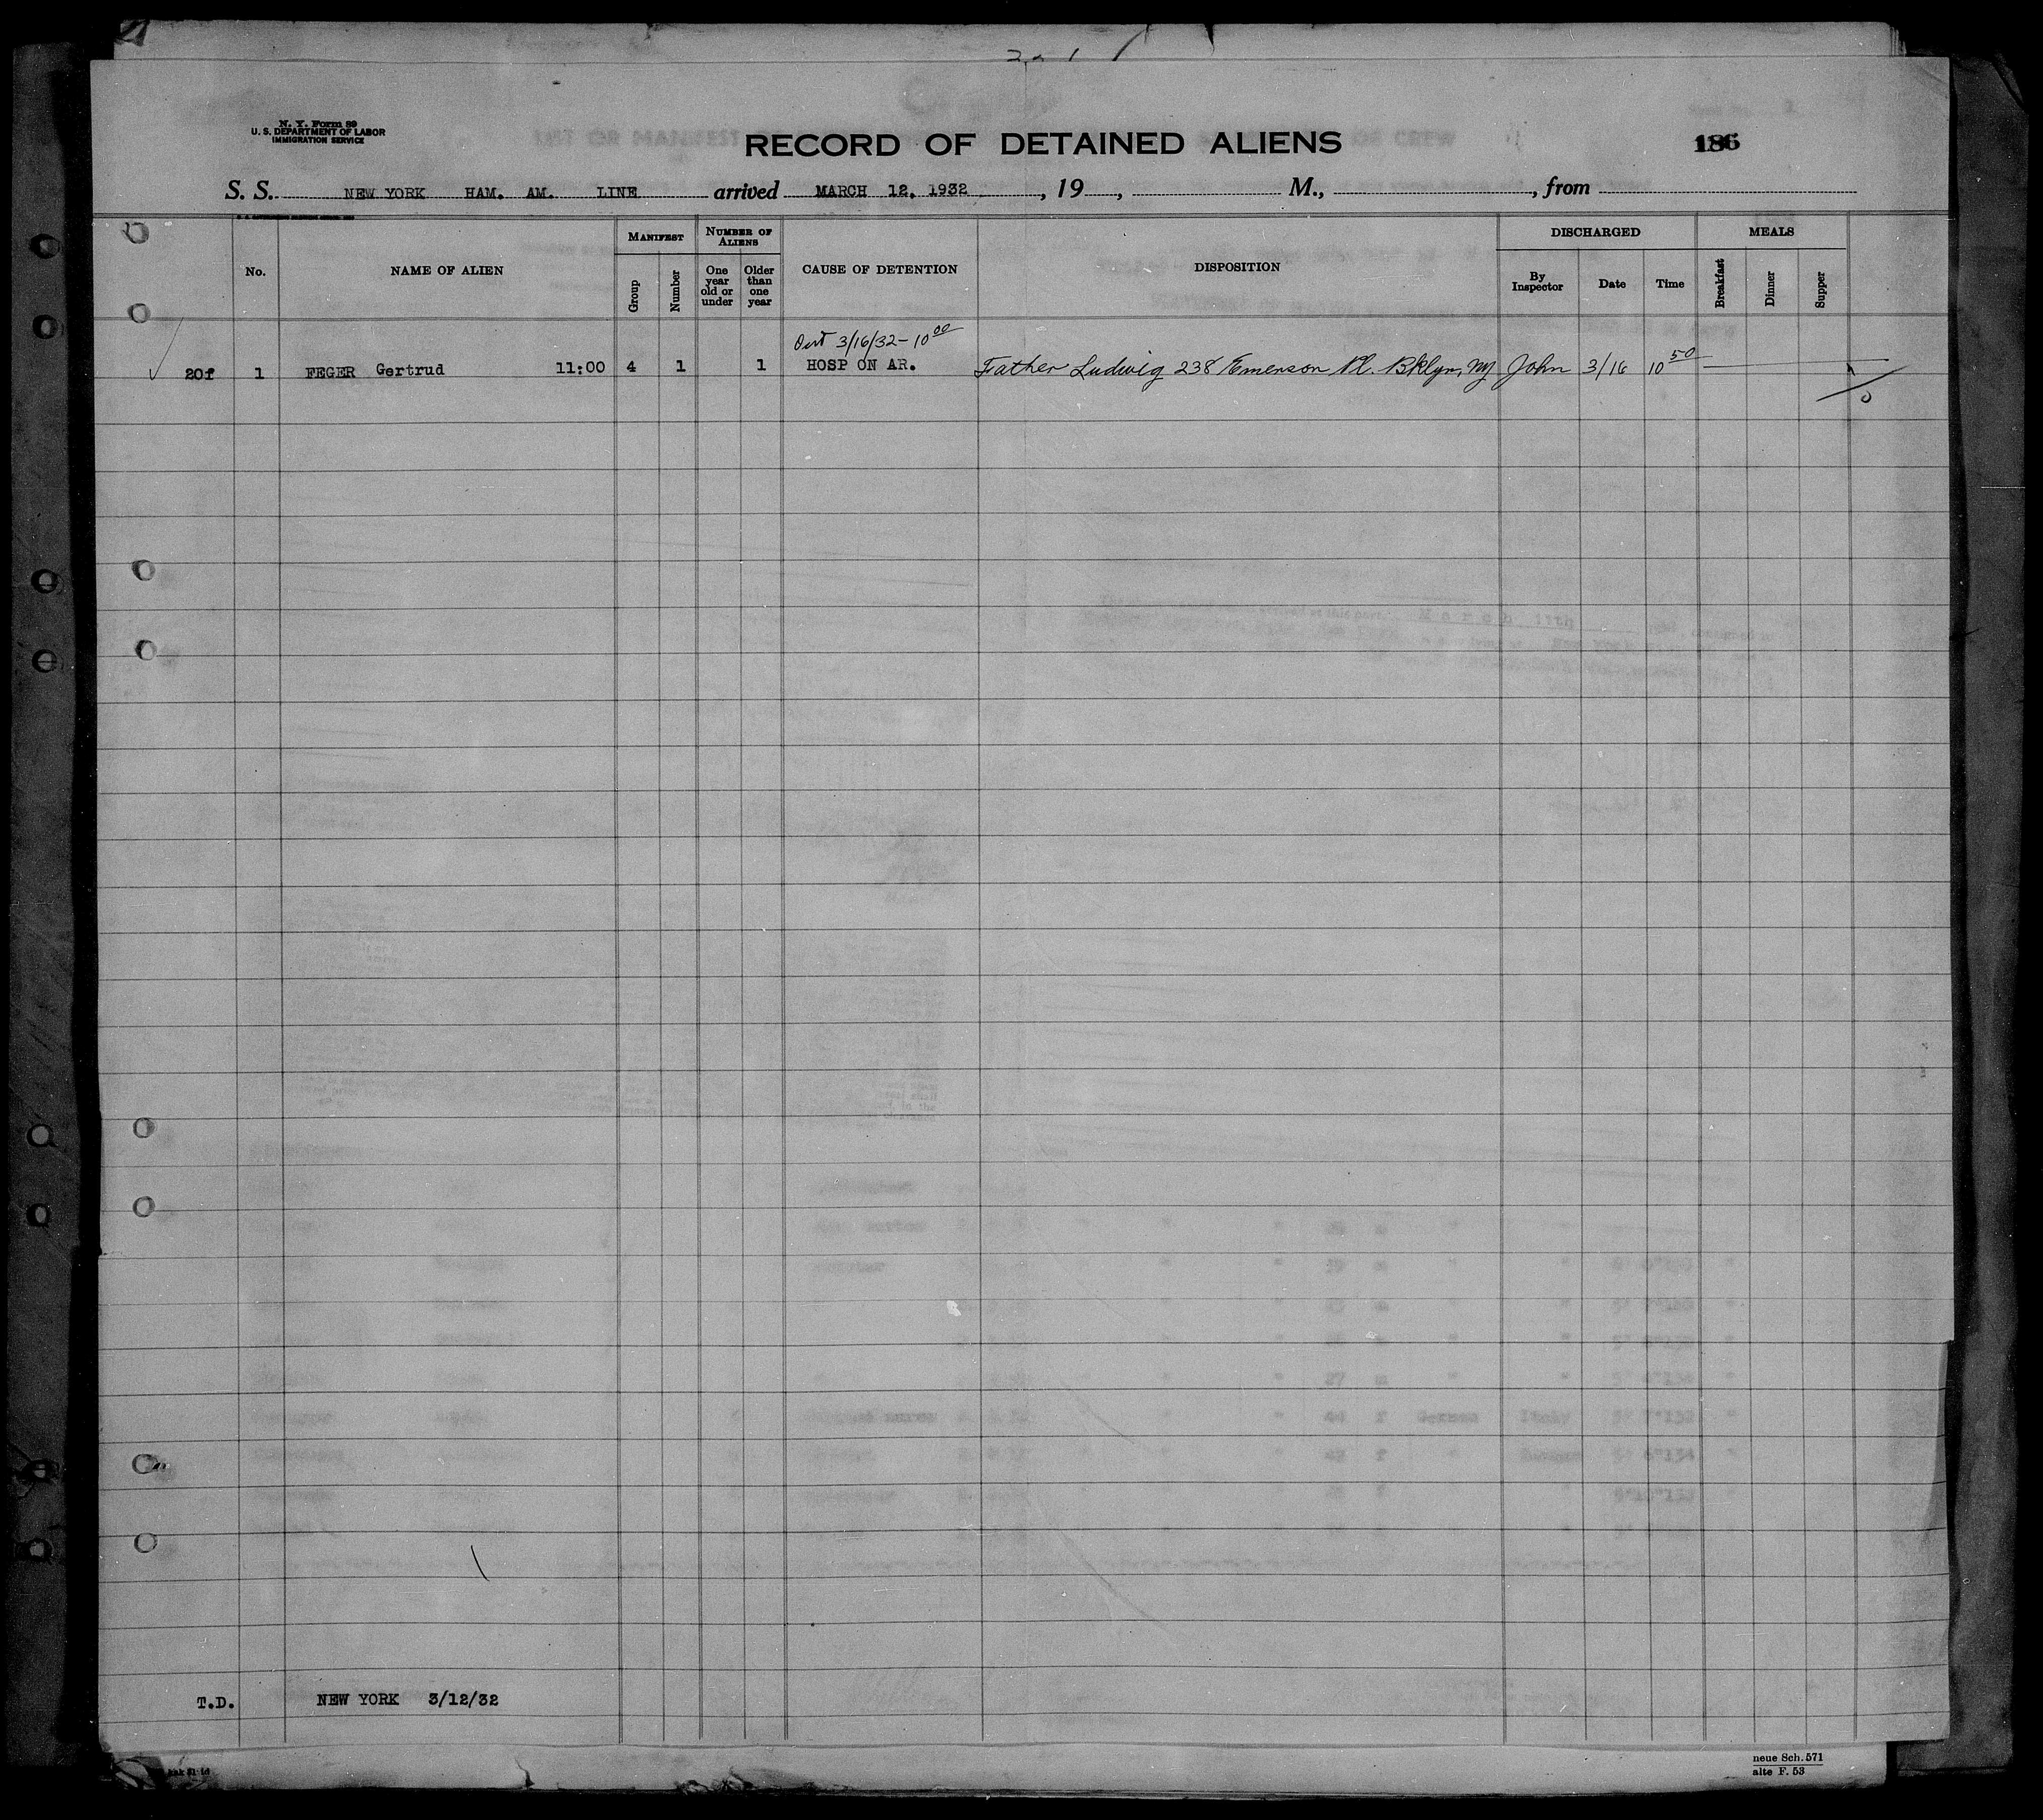 N. Y. Form 89
U. S. DEPARTMENT OF LABOR
IMMIGRATION SERVICE
RECORD OF DETAINED ALIENS
186
S. S. NEW YORK HAM. AM. LINE arrived MARCH 12, 1932, 19, M., , from
No.
NAME OF ALIEN
MANIFEST
Group
Number
NUMBER OF ALIENS
One year old or under
Older than one year
CAUSE OF DETENTION
DISPOSITION
DISCHARGED
By Inspector
Date
Time
MEALS
Breakfast
Dinner
Supper
3/16/32 - 10 00
20f 1 FEGER Gertrud 11:00 4 1 1 HOSP ON AR. Father Ludwig 238 Emerson Pl. Bklyn, NY John 3/16 10 50
T.D. NEW YORK 3/12/32
neue Sch. 571
alte F. 53